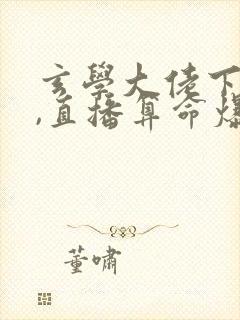 玄學大佬下
,直播算命爆
董嘯